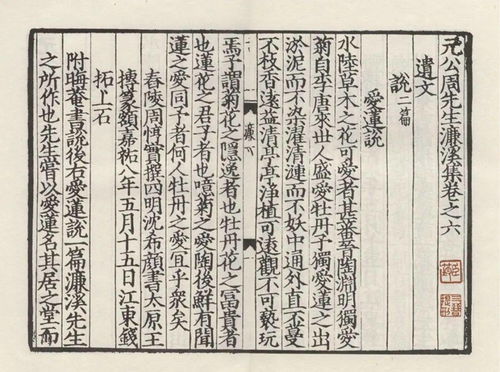 元公周先生濂溪集卷之六
遺文
說二篇
愛蓮說
水陸草木之花可愛者甚蕃晉陶淵明獨愛
菊自李唐來世人盛愛牡丹予獨愛蓮之出
淤泥而不染濯清漣而不妖中通外直不蔓
不枝香遠益清亭亭淨植可遠觀不可褻玩
焉予謂菊花之隱逸者也牡丹花之冨貴者
也蓮花之君子者也噫菊之愛陶後鮮有聞
蓮之愛同予者何人牡丹之愛宜乎衆矣
舂陵周惇實撰四明沈希顏書太原王
摶篆額嘉祐八年五月十五日江東錢
拓上石
附晦菴書說後右愛蓮說一篇濂溪先生
之所作也先生嘗以愛蓮名其居之堂而